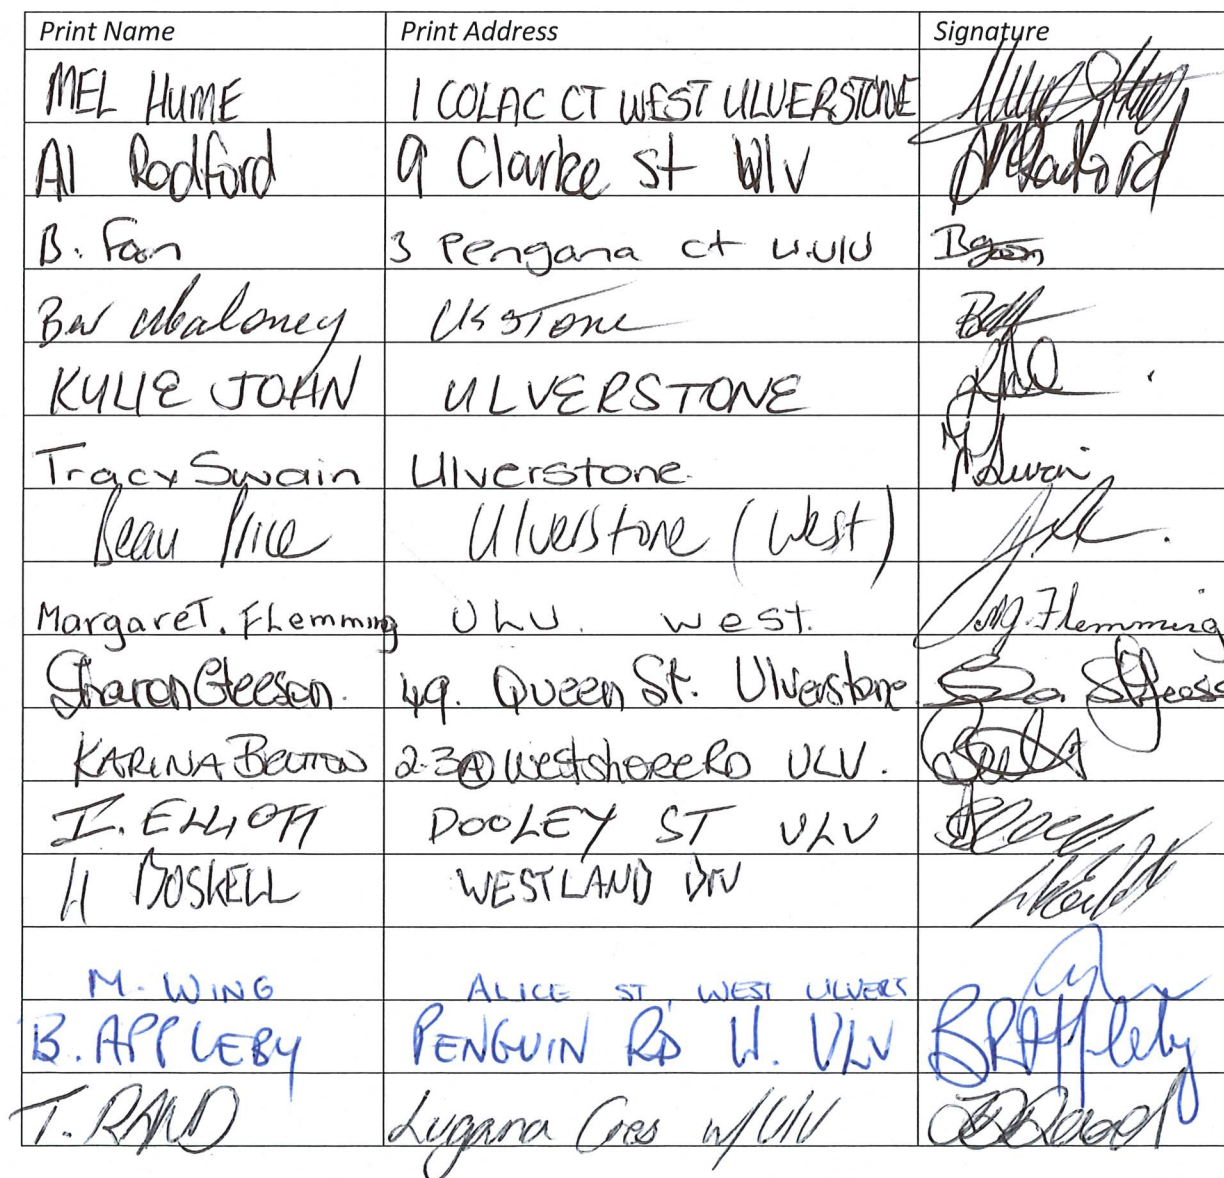 Print Name Print Address Signature
MEL HUME 1 COLAC CT WEST ULVERSTONE
Al Rodford 9 Clarke St Ulv Radford
B. Fan 3 Pengana ct w.ulv
BW Ulstone
KYLIE JOHN ULVERSTONE
Tracy Swain Ulverstone. Swain
Beau Price Ulverstone (West)
MargareT. FLemming ULV. west. M. Flemming
Sharon Gleeson. 49. Queen St. Ulverstone
KARINA BELTON 2-3(A) Westshore RD ULV.
I. ELLIOTT DOOLEY ST ULV
BOSKELL WESTLAND DIV
M. WING ALICE ST, WEST ULVERS
B. APPLEBY PENGUIN RD W. ULV BRAppleby
T. RAND Lugana Cres w/Ulv